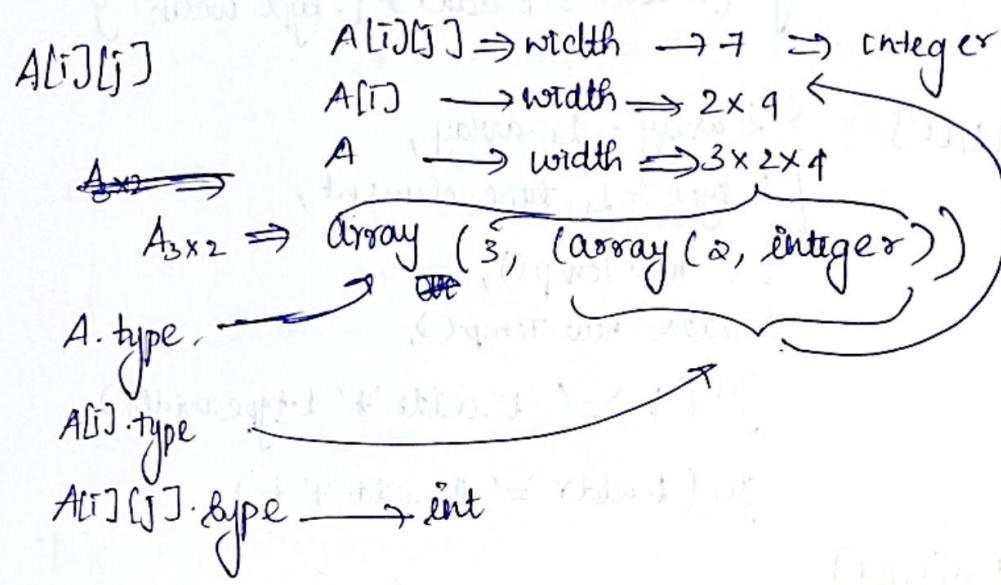 A[i][j]
A[i][j] ⇒ width → 7 ⇒ integer
A[i] → width ⇒ 2 × 9
A → width ⇒ 3 × 2 × 4
A3×2 ⇒
A3×2 ⇒ array (3, (array (2, integer)))
A.type
A[i].type
A[i][j].type → int